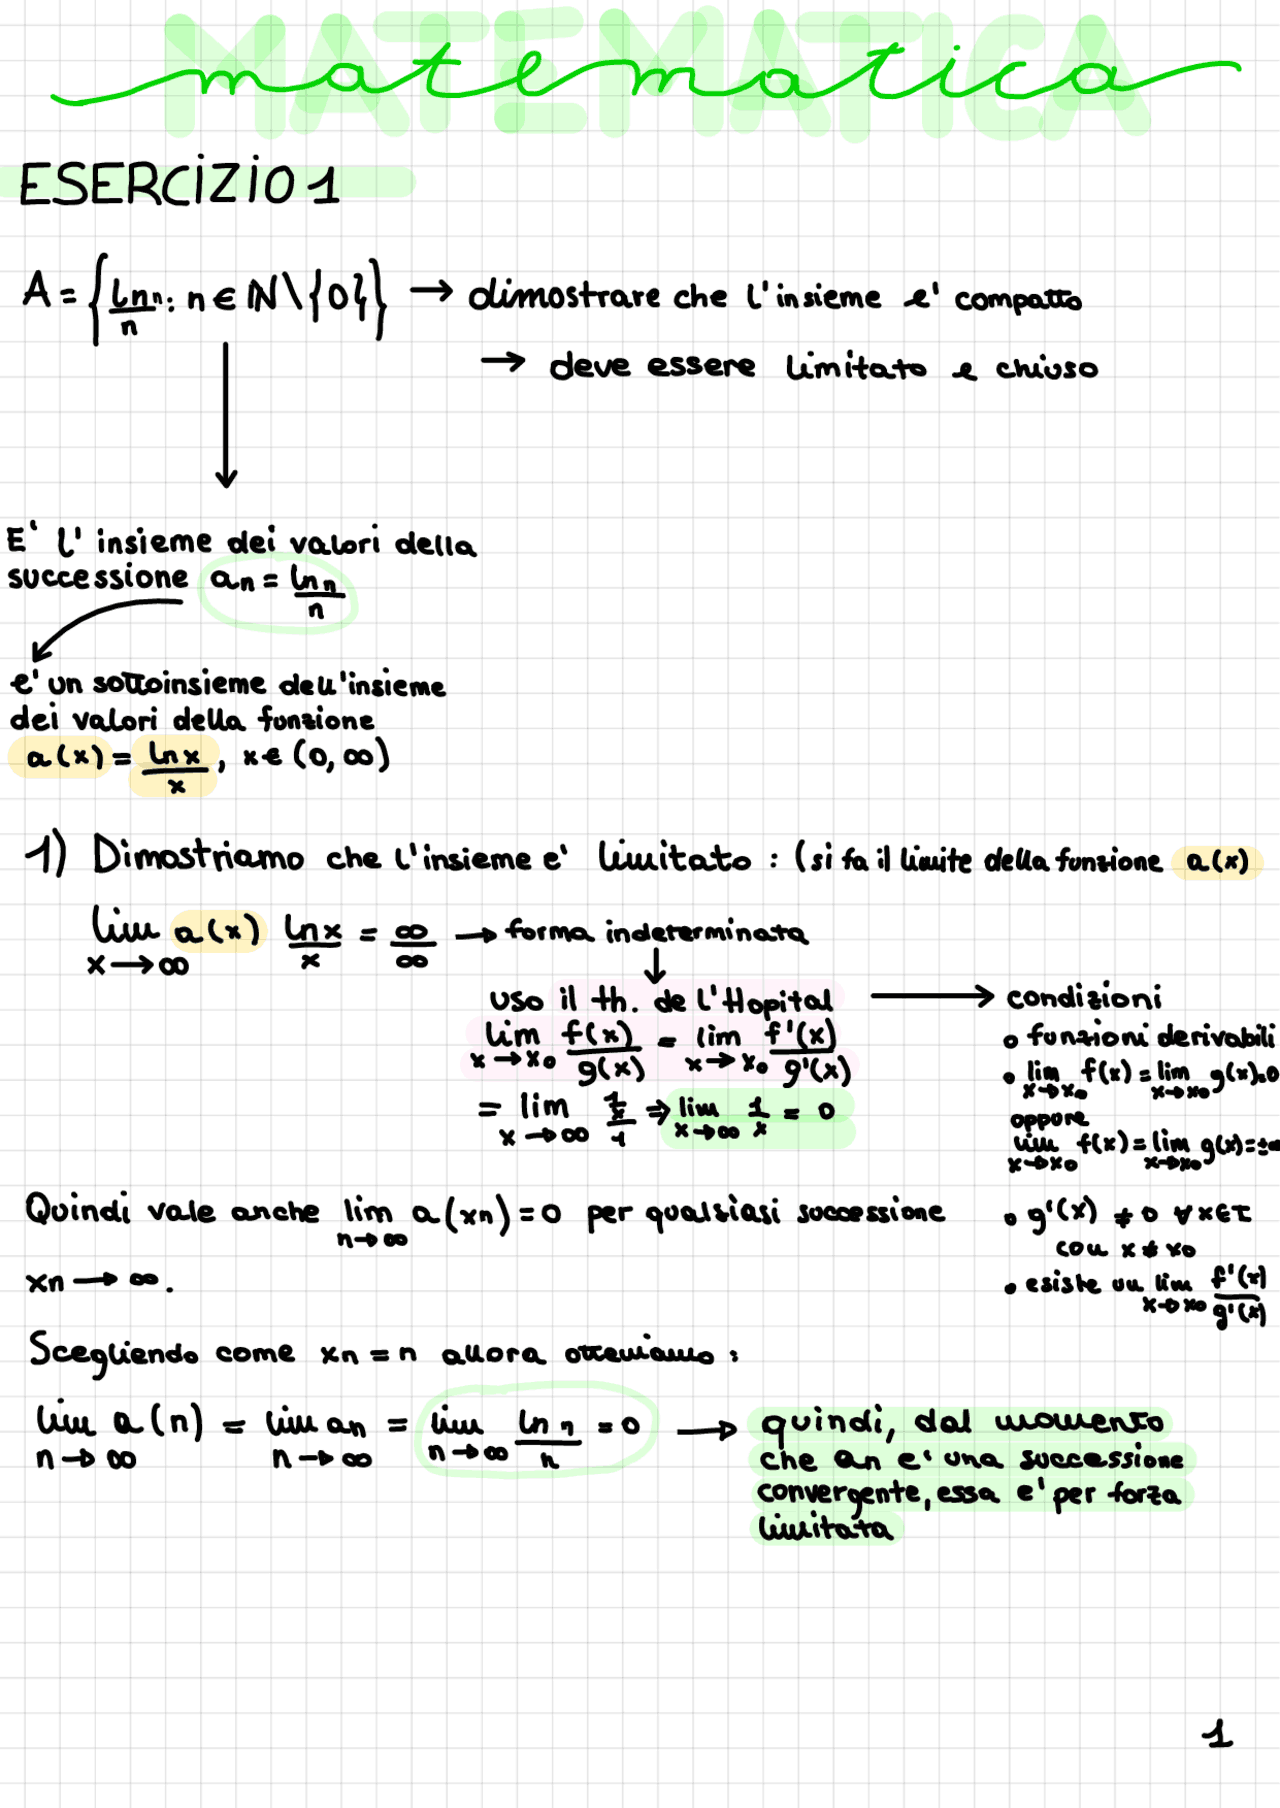 MATEMATICA
matematica
ESERCIZIO 1
A = { ln n / n : n ∈ ℕ \ {0} } → dimostrare che l'insieme e' compatto
→ deve essere limitato e chiuso
E' l'insieme dei valori della
successione an = ln n / n
e' un sottoinsieme dell'insieme
dei valori della funzione
a(x) = ln x / x, x ∈ (0, ∞)
1) Dimostriamo che l'insieme e' limitato : (si fa il limite della funzione a(x)
lim x→∞ a(x) ln x / x = ∞/∞ → forma indeterminata
uso il th. de l'Hopital → condizioni
lim x→x0 f(x)/g(x) = lim x→x0 f'(x)/g'(x)
= lim x→∞ (1/x)/1 ⇒ lim x→∞ 1/x = 0
• funzioni derivabili
• lim x→x0 f(x) = lim x→x0 g(x)=0
oppure
lim x→x0 f(x) = lim x→x0 g(x)=±∞
• g'(x) ≠ 0 ∀x∈I
con x ≠ x0
• esiste un lim x→x0 f'(x)/g'(x)
Quindi vale anche lim n→∞ a(xn) = 0 per qualsiasi successione
xn → ∞.
Scegliendo come xn = n allora otteniamo :
lim n→∞ a(n) = lim n→∞ an = lim n→∞ ln n / n = 0 → quindi, dal momento
che an e' una successione
convergente, essa e' per forza
limitata
1